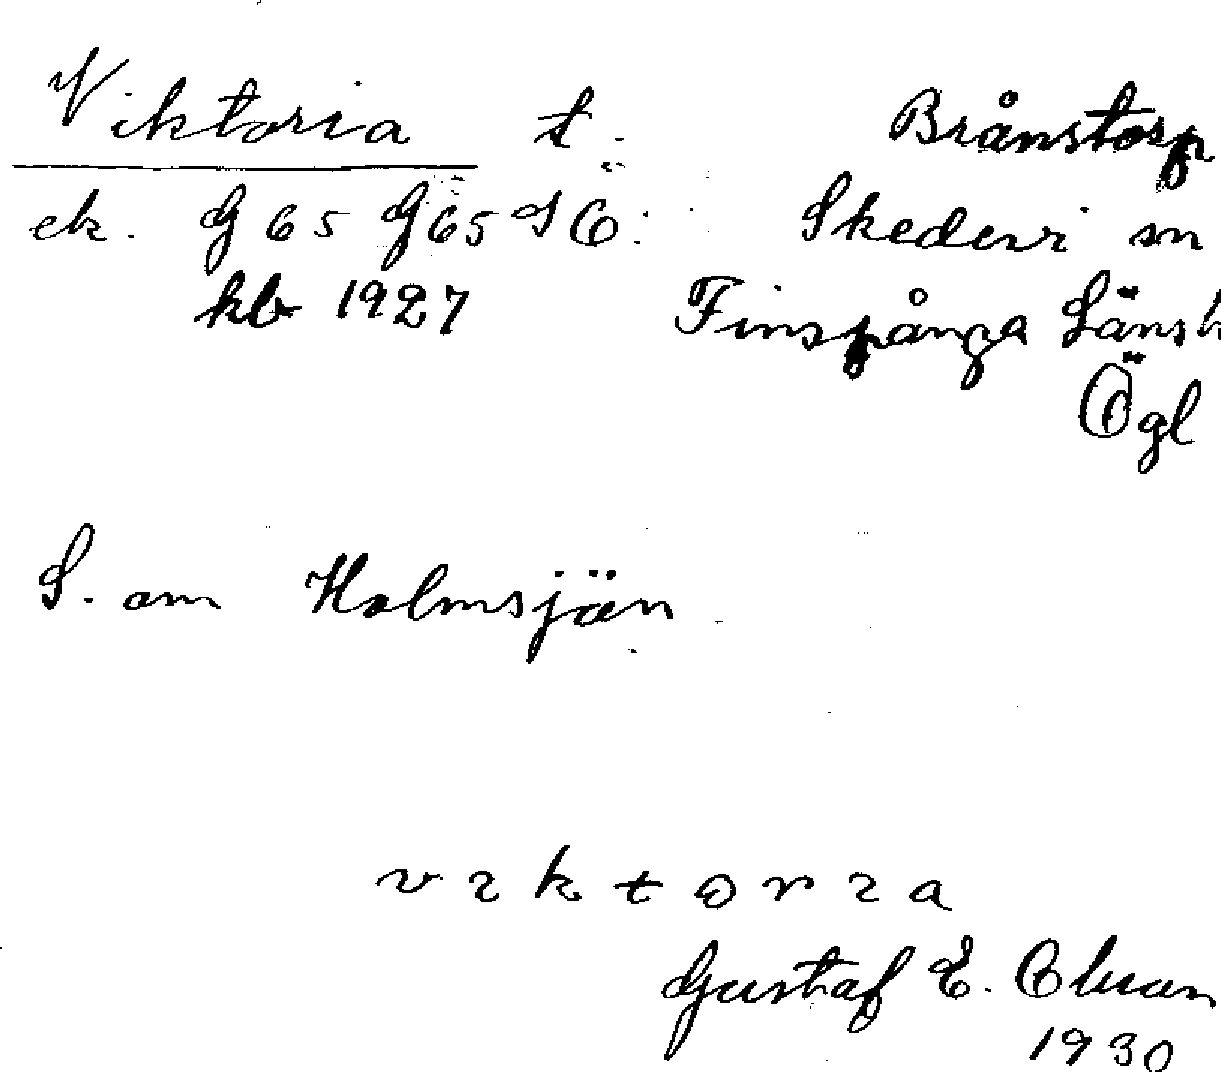 Viktoria t. Brånstorp
ek. G 65 G65 SO: Skedevi sn
kb 1927 Finspånga Länsh
Ögl
S. om Holmsjön
v ı k t o r ı a
Gustaf E.
1930